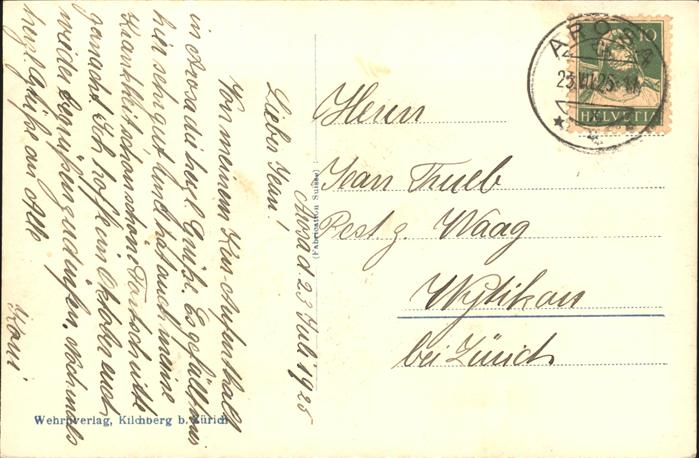 Arosa d. 23 Juli 1925
Lieber Jean!
Von meinem Kur-Aufenthalt
in Arosa die herzl. Grüße. Es gefällt mir
hier sehr gut und hat auch meine
Krankheit schon schöne Fortschritte
gemacht. Ich hoffe im Oktober euch
wieder begrüßen zu dürfen. Nochmals
herzl. Grüße an Alle
Herrn
Jean Trueb
Rest z. Waag
Wytikon
bei Zürich
AROSA
23.VII.25
10
HELVETIA
(Fabrication Suisse)
Wehrliverlag, Kilchberg b. Zürich